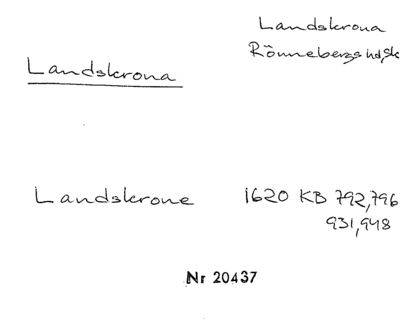 Landskrona
Rönnebergs hd, Sk
Landskrona
Landskrone 1620 KB 792,796
931,948
Nr 20437